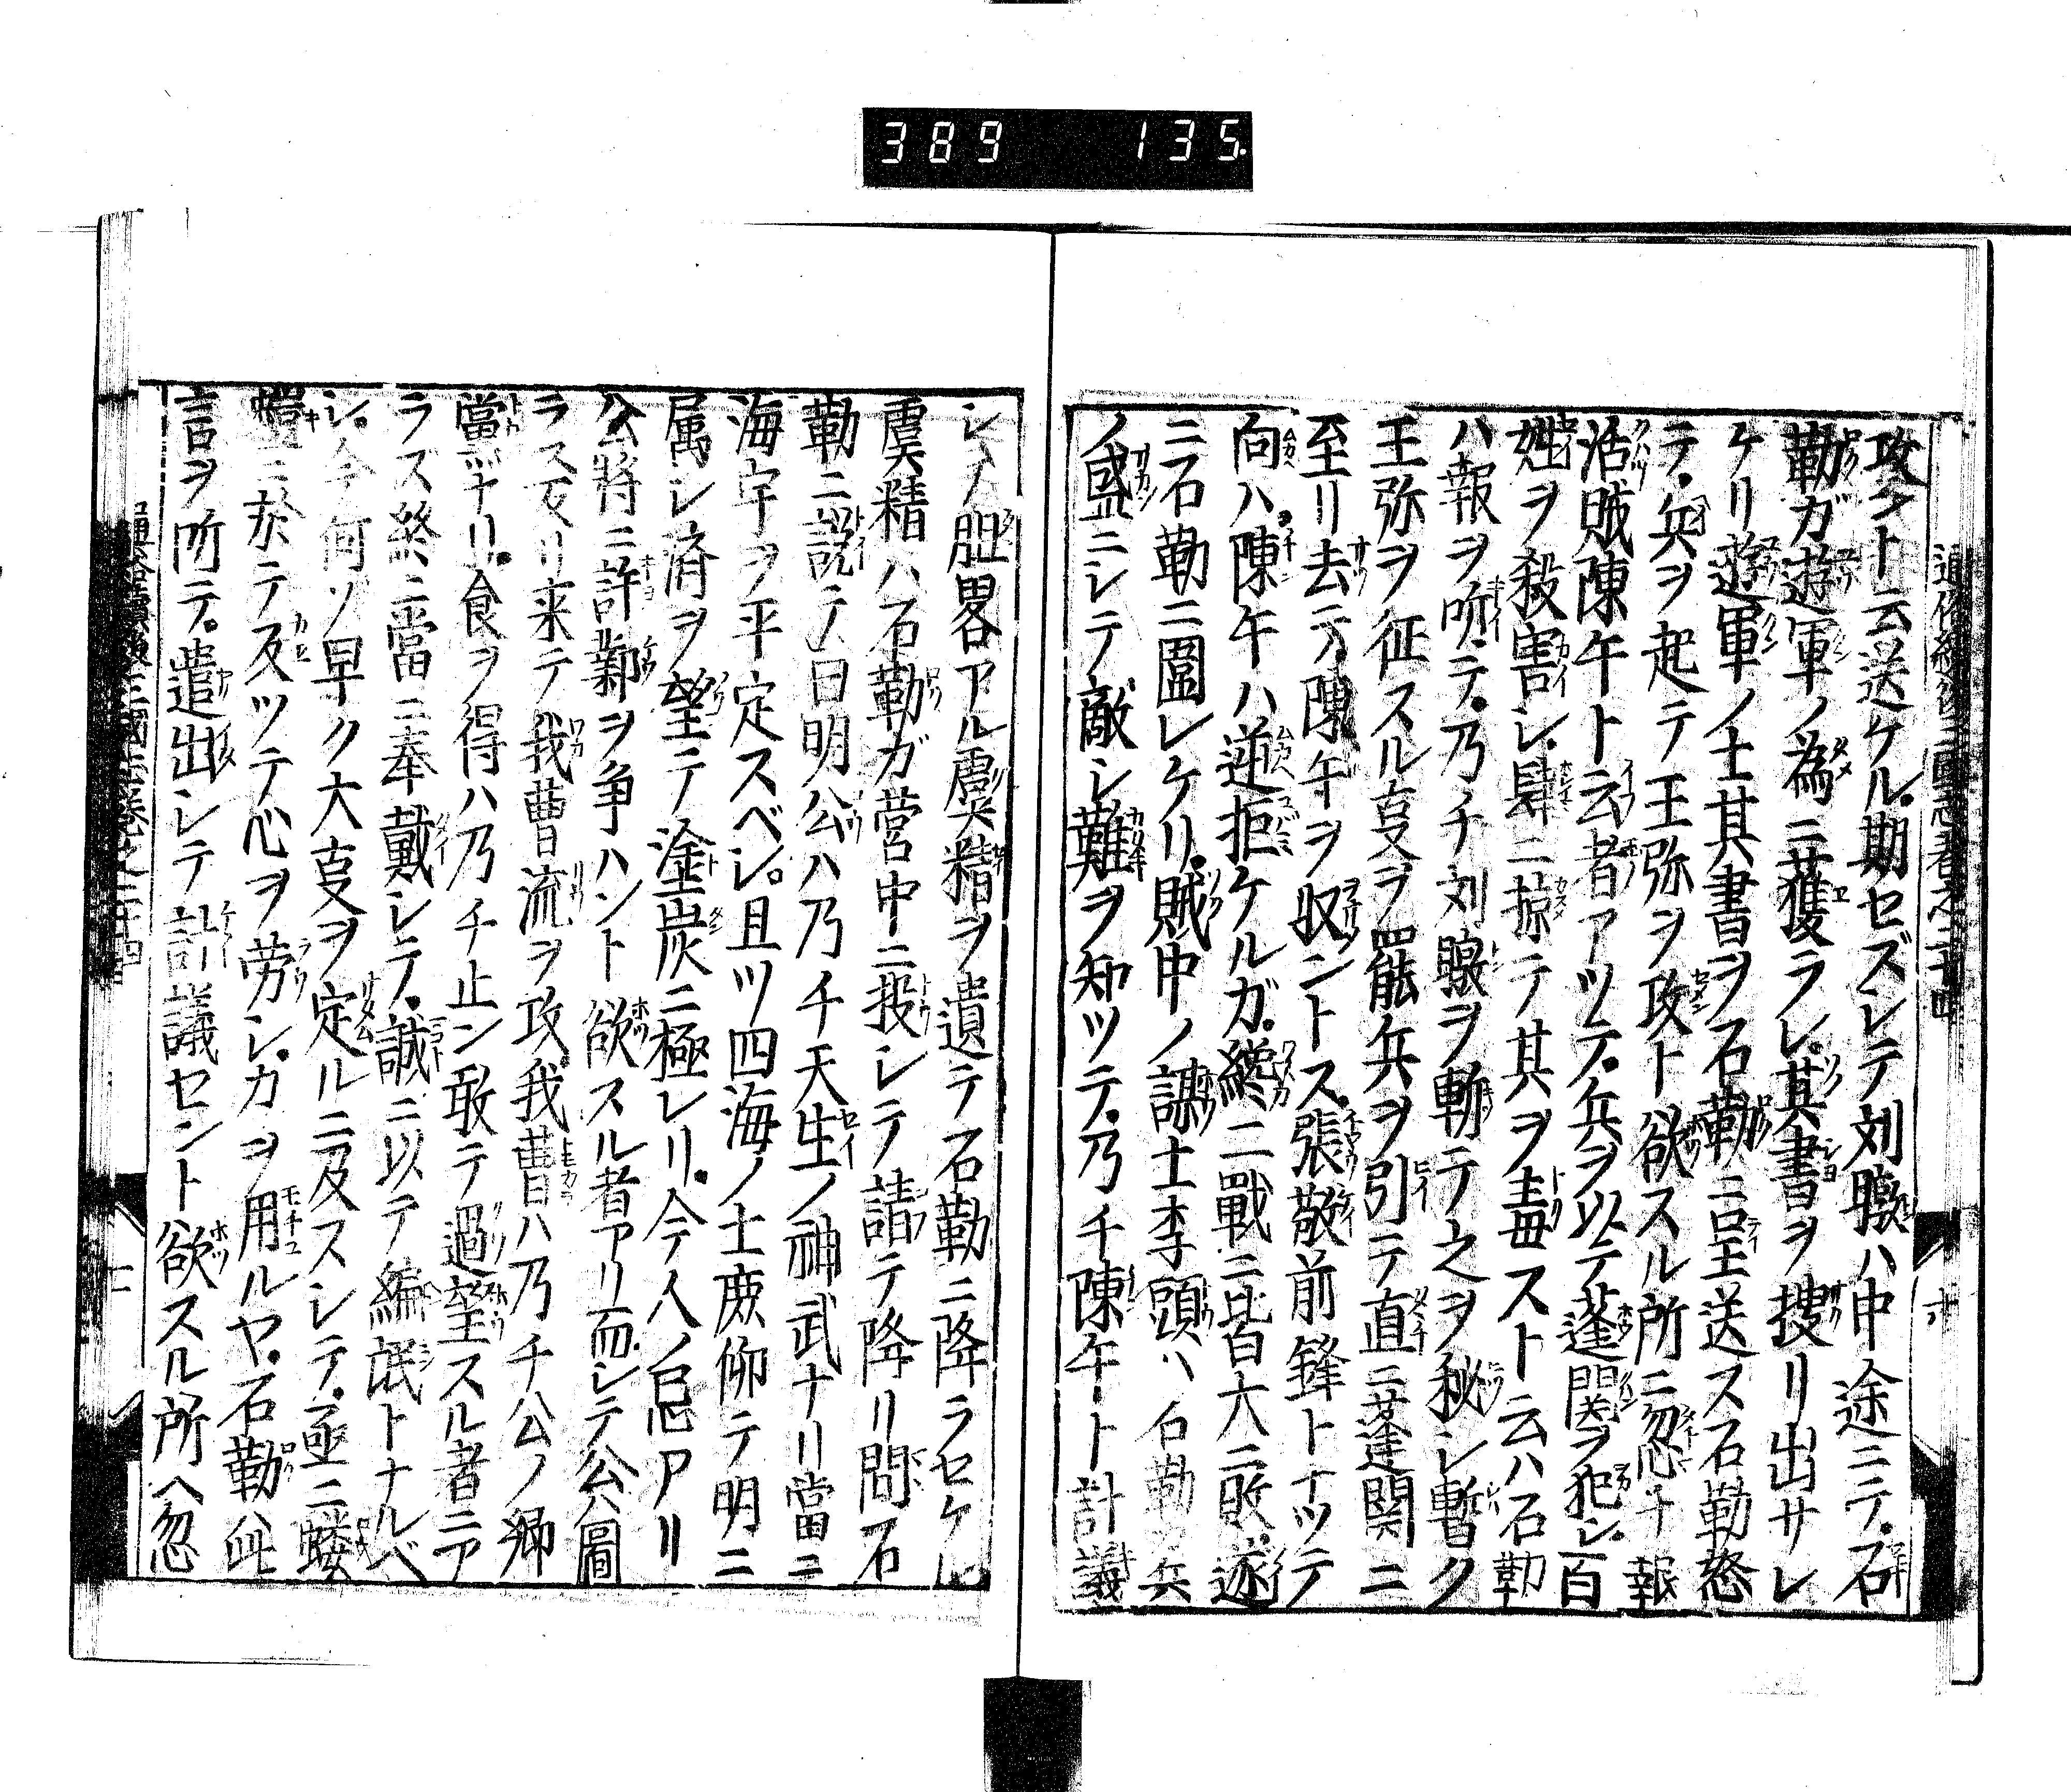 389 135.
攻ント云送ケル期セズシテ刘暾ハ中途ニテ石
勒ガ遊軍ノ為ニ獲ラレ其書ヲ捜リ出サレ
ケリ遊軍ノ士其書ヲ石勒ニ呈送ス石勒怒
テ兵ヲ起テ王弥ヲ攻ト欲スル所ニ忽チ報
活賊陳午ト云者アツテ兵ヲ以テ蓬関ヲ犯シ百
姓ヲ殺害シ肆ニ掠テ其ヲ毒スト云ハ石勒
ハ報ヲ听テ乃チ刘暾ヲ斬テ之ヲ秘シ暫ク
王弥ヲ征スル叓ヲ罷兵ヲ引テ直ニ蓬関ニ
至リ去テ陳午ヲ収ントス張敬前鋒トナツテ
向ハ陳午ハ逆拒ケルガ纔二戰ニ皆大ニ敗遂
ニ石勒ニ圍レケリ賊中ノ謀士李頭ハ石勒兵
ノ盛ニシテ敵シ難ヲ知ツテ乃チ陳午ト計議
シテ胆畧アル虞精ヲ遺テ石勒ニ降ラセケル
虞精ハ石勒ガ営中ニ投シテ請テ降リ間石
勒ニ説テノ日明公ハ乃チ天生ノ神武ナリ當ニ
海宇ヲ平定スベシ且ツ四海ノ士庶仰テ明ニ
属シ済ヲ望テ塗炭ニ極レリ今人ノ忌アリ
公將ニ許鄴ヲ争ハント欲スル者アリ而シテ公圖
ラス反リ来テ我曹流ヲ攻我曹ハ乃チ公ノ郷
當ナリ食ヲ得ハ乃チ止ン敢テ過望スル者ニア
ラズ終ニ當ニ奉戴シテ誠ニ以テ編氓トナルベ
シ今何ソ早ク大叓ヲ定ルニ及スシテ亟ニ螻
蟻ニ於テ反ツテ心ヲ労シカヲ用ルヤ石勒ハ此
言ヲ听テ遣出シテ計議セント欲スル所ヘ忽